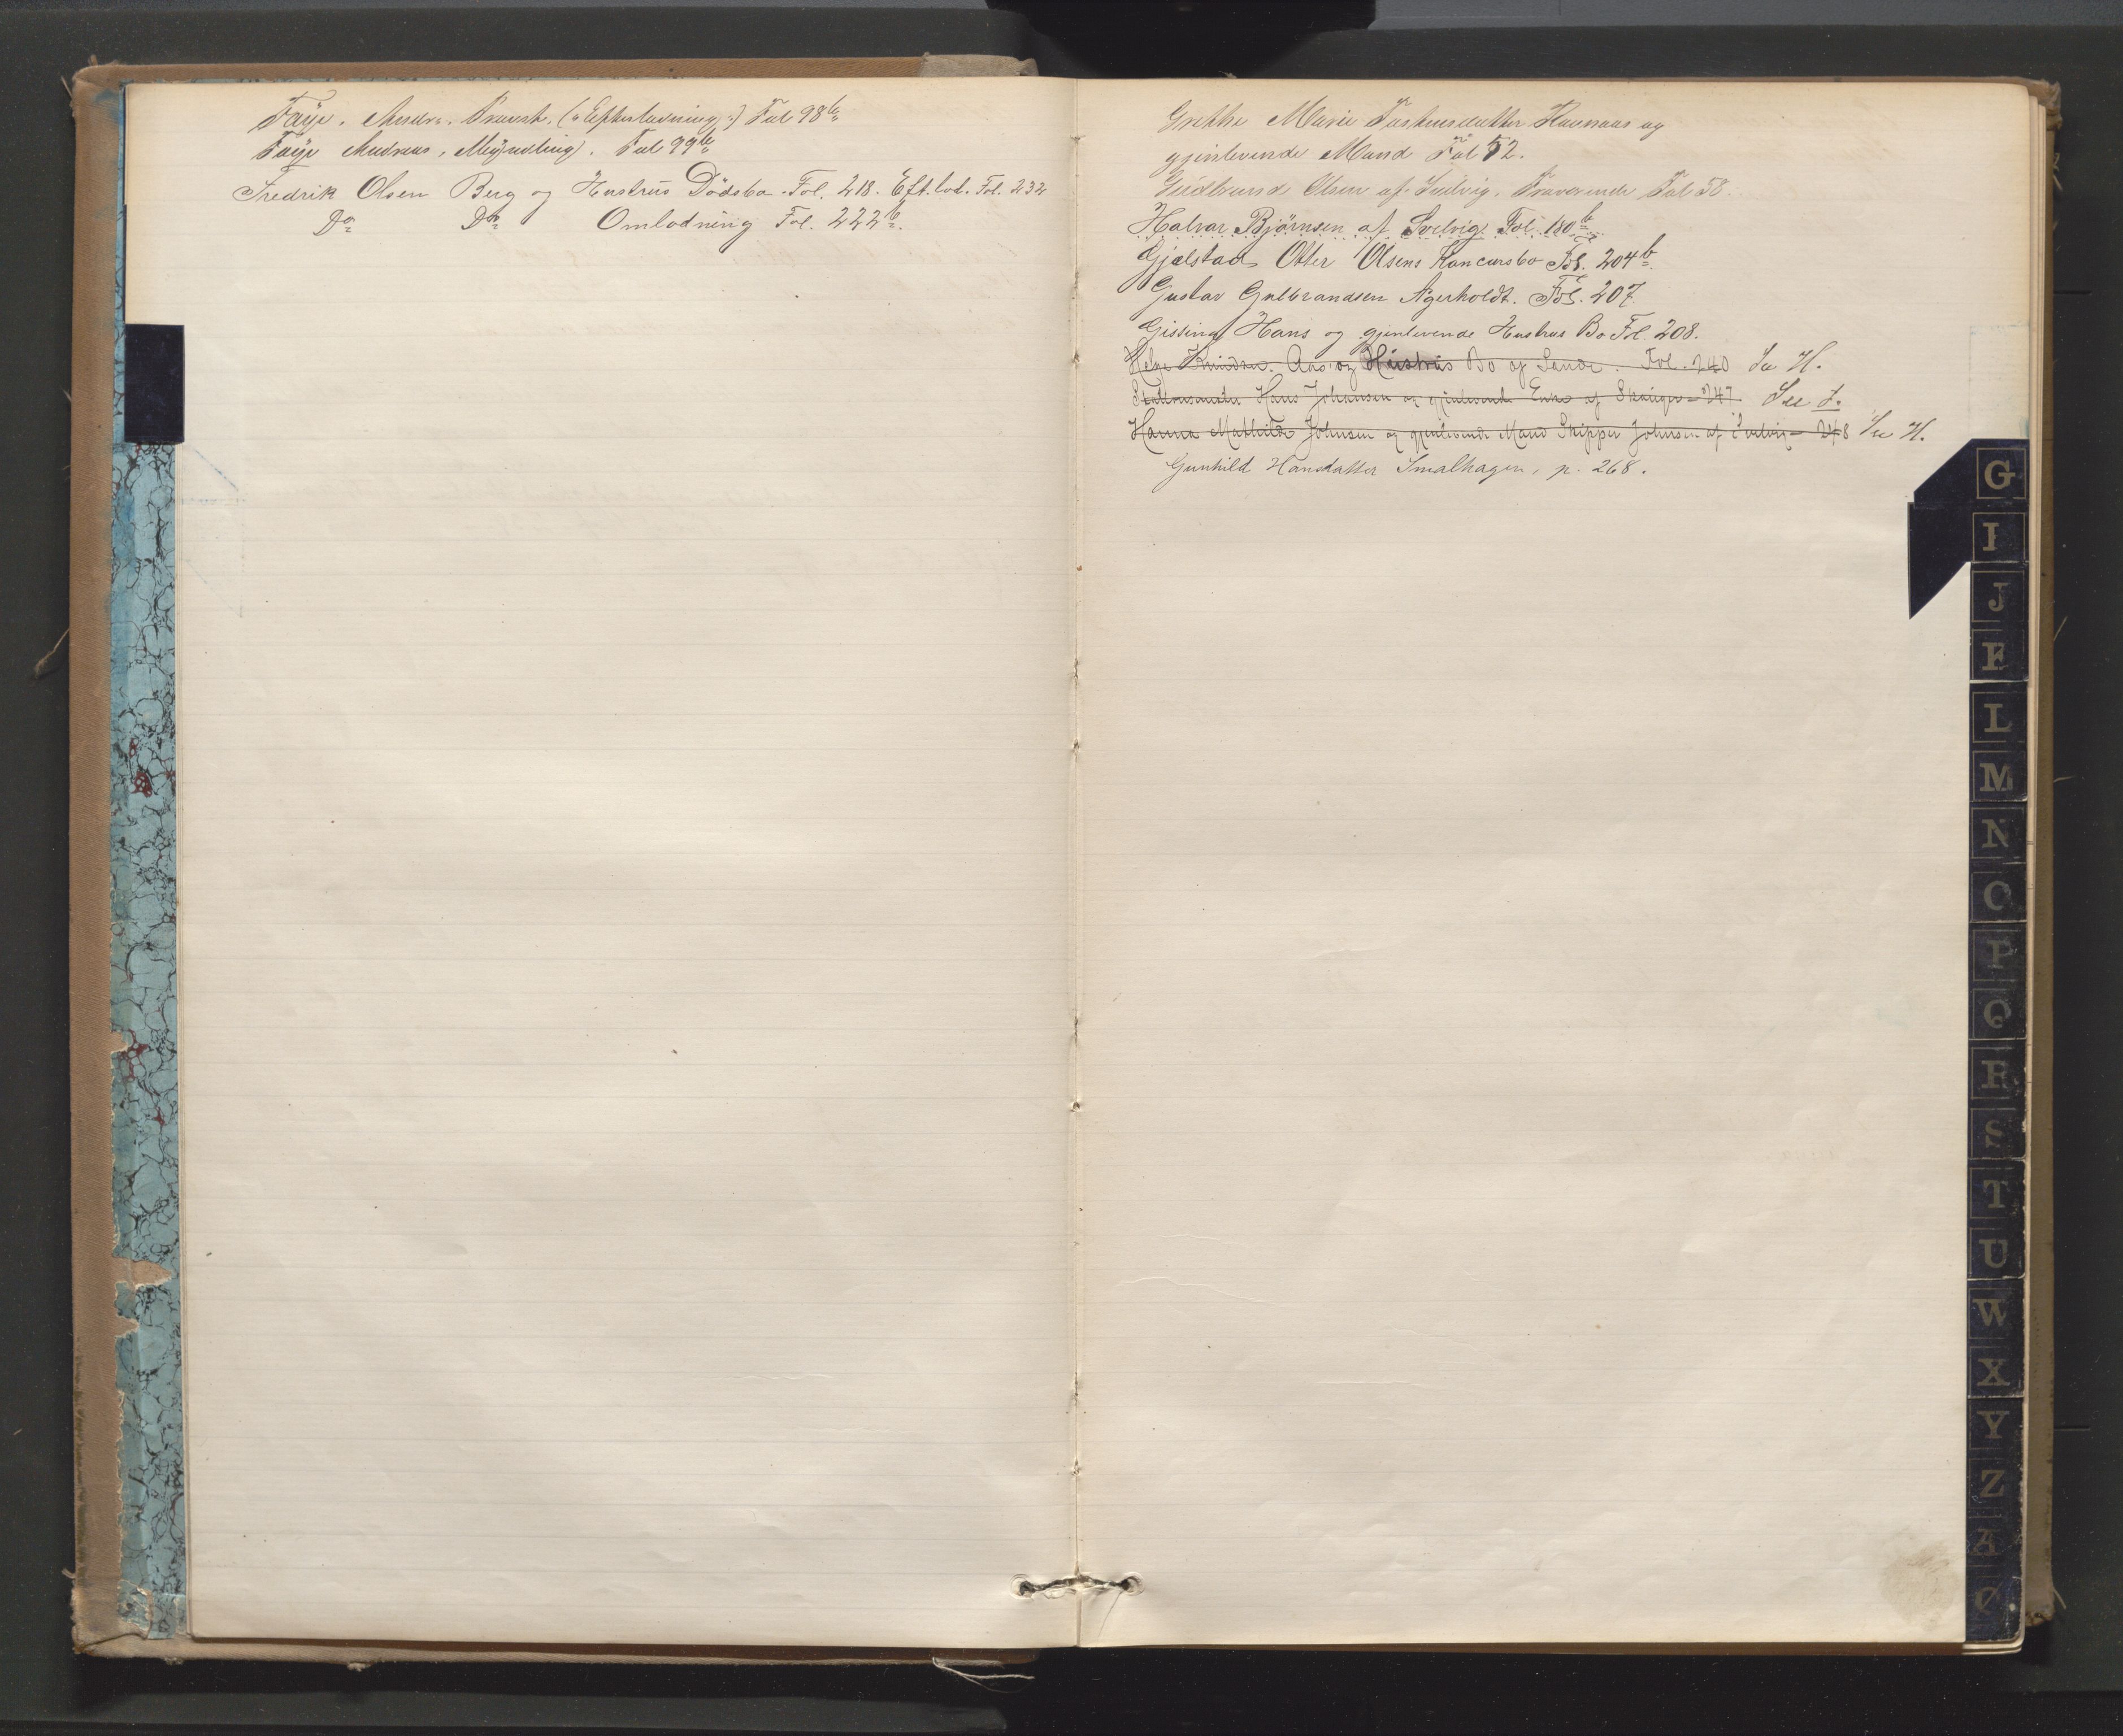 Faÿe. Andr. Provst. (: Efterlodning :) Fol 98b
Faÿe Andreas, Mÿndling. Fol 99b
Fredrik Olsen Berg og Hustrus Dödsbo. Fol. 218. Eft.lod. Fol. 232
Do Do Omlodning Fol. 222b.
Grethe Marie Torstensdatter Havnaas og
gjenlevende Mand Fol 52.
Guldbrand Olsen af Svelvig, Fraværende Fol 58.
Halvar Björnsen af Svelvig Fol. 180b
Gjælstad Otter Olsens Concursbo Fol. 204b.
Gustav Gulbrandsen Agerholdt. Fol. 207
Gissing Hans og gjenlevende Hustrus Bo Fol. 208.
Helge Knudsen Aas og Hustrus Bo af Sande. Fol. 240 See H.
Hans Johansen og gjenlevende Enke af Skouger - 247. See J.
Hanna Mathilde Johnsen og gjenlevende Mand Skipper Johnsen af Svelvig - 248 See H.
Gunhild Hansdatter Smalhagen, p. 268.
G
I
J
K
L
M
N
O
P
Q
R
S
T
U
W
X
Y
Z
Æ
Ø